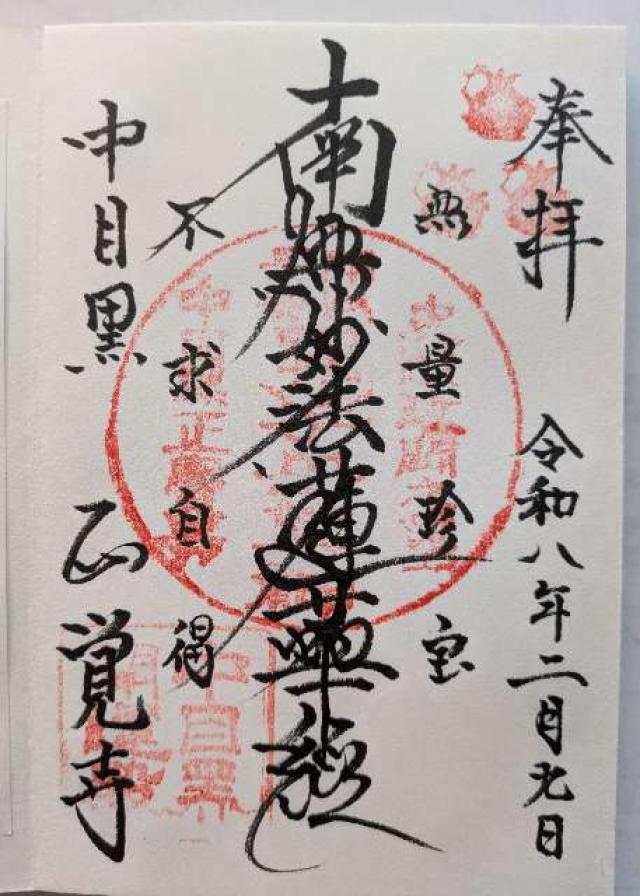 奉拝
令和八年二月九日
無量珍宝
南無妙法蓮華経
不求自得
中目黒
正覚寺